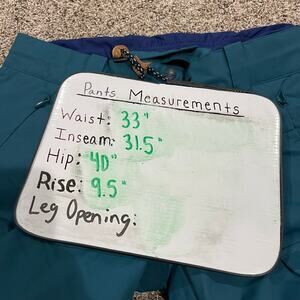 Pants Measurements
Waist: 33"
Inseam: 31.5"
Hip: 40"
Rise: 9.5"
Leg Opening: